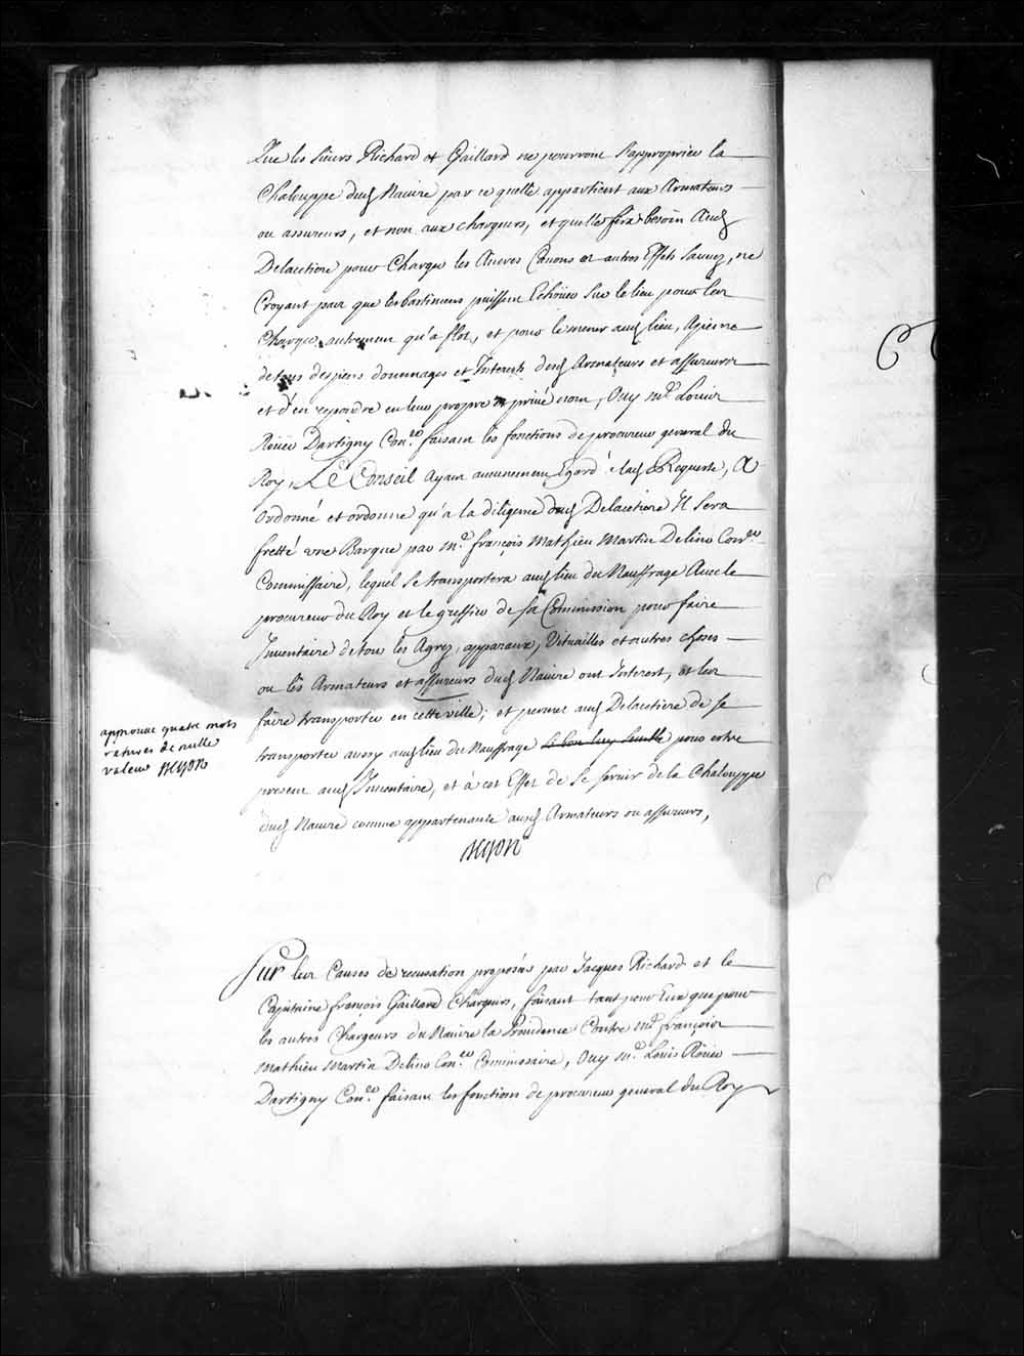 Que les sieurs Richard et Gaillard ne pourront Sapproprier la
Chalouppe dud Navire par ce quelle appartient aux Armateurs
ou assureurs, et non aux chargeurs, et quelle sera besoin Aud
Delacetiere pour Charger les Ancres Canons et autres Effets Sauvez, ne
Croyant pas que les bastimens puissent Echoüer Sur le lieu pour les
Charger autrement qu'a flot, et pour le mener aud lieu, A peine
de tous despens dommages et Interests desd Armateurs et assureurs
et d'en repondre en leur propre et privé nom, Ouy mre. Louis
Roüer Dartigny Coner. faisant les fonctions de procureur general du
Roy, Le Conseil ayant aucunement Egard a lad Requeste, A
Ordonné et ordonne qu'a la diligence dud Delacetiere Il Sera
fretté une Barque par mre. françois Mathieu Martin Delino Coner.
Commissaire, lequel se transportera aud lieu du Nauffrage Avec le
procureur du Roy et le greffier de sa Commission pour faire
Inventaire de tous les Agrez, apparaux, Vituailles et autres choses
ou les Armateurs et assureurs dud Navire ont Interest, et les
faire transporter en cette ville; et permet aud Delacetiere de se
transporter aussy aud lieu du Nauffrage si bon luy semble pour estre
present aud Inventaire, et à cet Effet de Se servir de la Chalouppe
dud Navire comme appartenante ausd Armateurs ou assureurs,
approuué quatre mots
ratures de nulle
valeur
Sur les Causes de recusation proposées par Jacques Richard et le
Capitaine françois Gaillard Chargeurs, faisant tant pour Eux que pour
les autres Chargeurs du Navire la Providence Contre mre. françois
Mathieu Martin Delino Coner. Commissaire, Ouy mre. Louis Roüer
Dartigny Coner. faisant les fonctions de procureur general du Roy